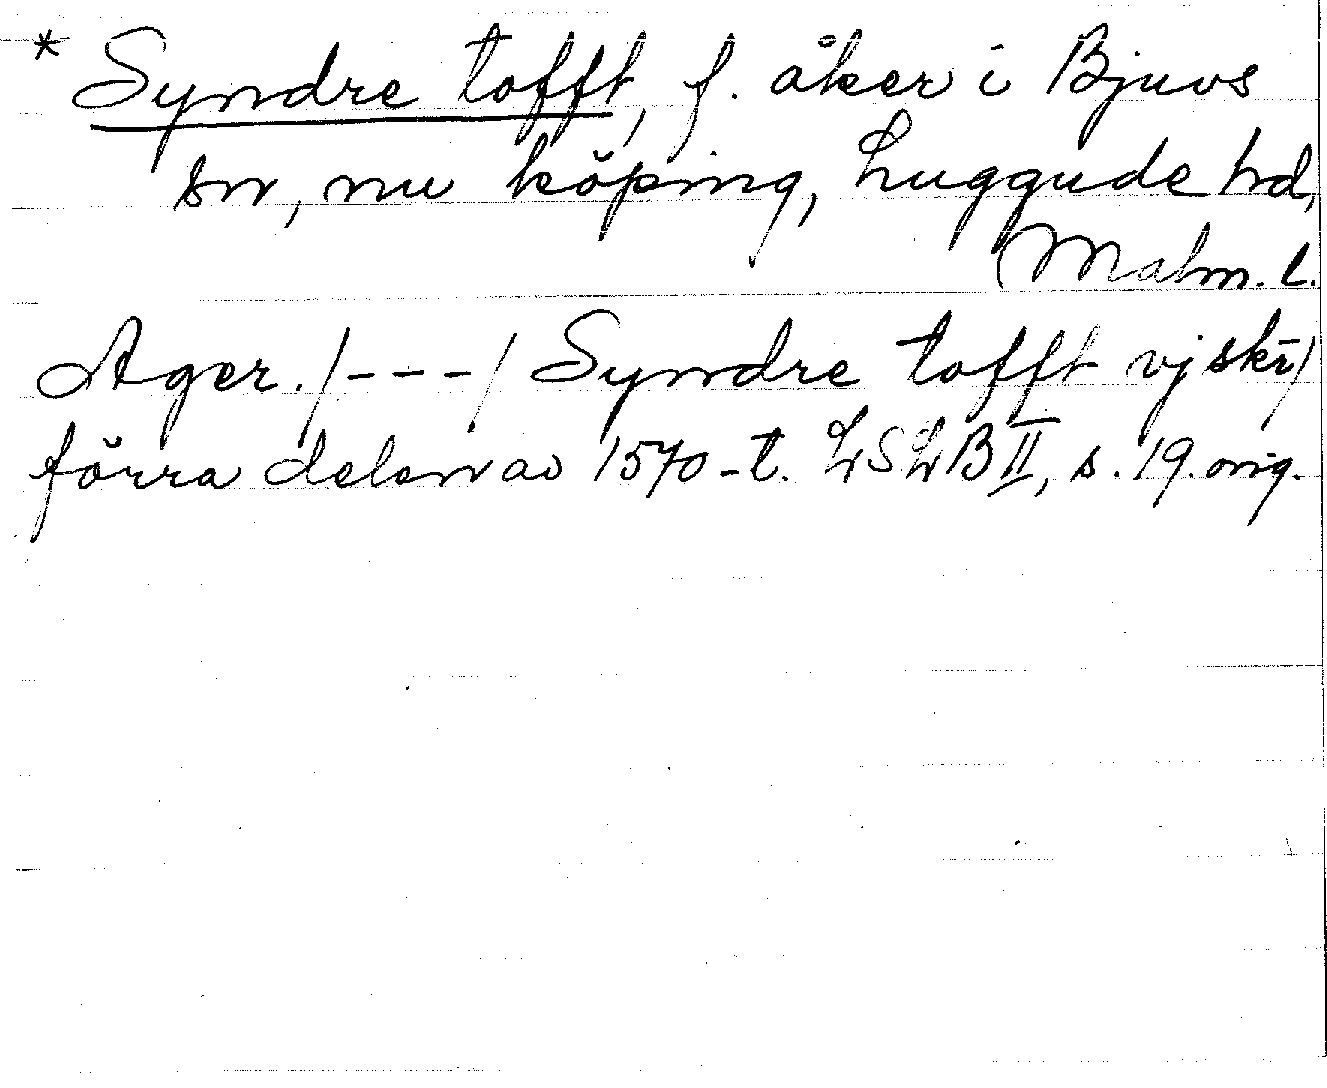 * Syndre tofft, f. åker i Bjuvs
sn, nu köping, Luggude hd,
Malm. l.
Ager. /---/ Syndre tofft vj skr/
förra delen av 1570-t. LSLB II, s. 19. orig.